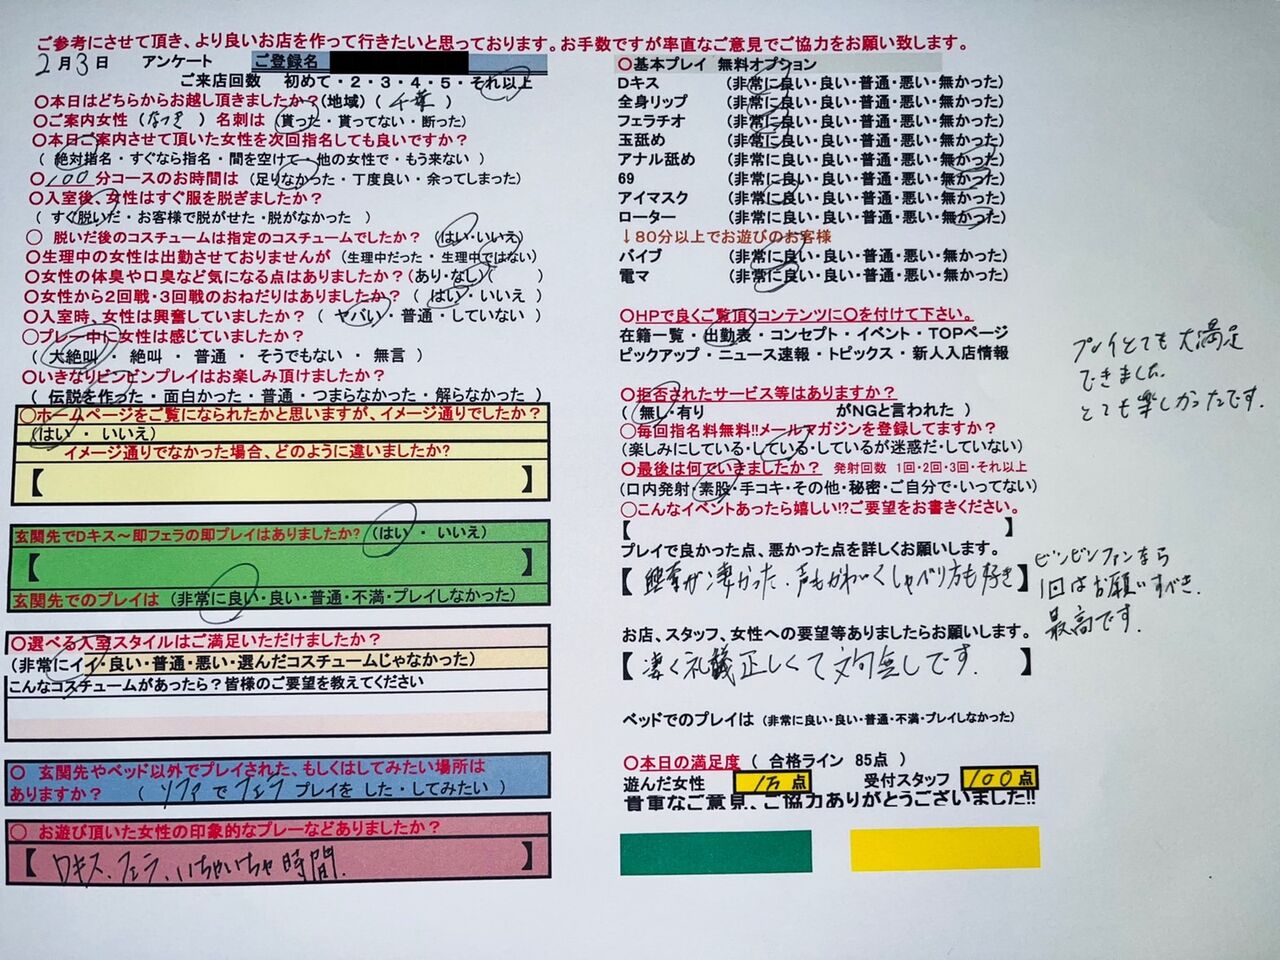 ご参考にさせて頂き、より良いお店を作って行きたいと思っております。お手数ですが率直なご意見でご協力をお願い致します。
2月3日 アンケート ご登録名
ご来店回数 初めて・2・3・4・5・それ以上
〇本日はどちらからお越し頂きましたか?(地域)( 千葉 )
〇ご案内女性 (なつき) 名刺は (貰った・貰ってない・断った)
〇本日ご案内させて頂いた女性を次回指名しても良いですか?
( 絶対指名・すぐなら指名・間を空けて・他の女性で・もう来ない )
〇 100 分コースのお時間は (足りなかった・丁度良い・余ってしまった)
〇入室後、女性はすぐ服を脱ぎましたか?
( すぐ脱いだ・お客様で脱がせた・脱がなかった )
〇 脱いだ後のコスチュームは指定のコスチュームでしたか? (はい・いいえ)
〇生理中の女性は出勤させておりませんが (生理中だった・生理中ではない)
〇女性の体臭や口臭など気になる点はありましたか?(あり・なし)( )
〇女性から2回戦・3回戦のおねだりはありましたか? ( はい・いいえ )
〇入室時、女性は興奮していましたか? ( ヤバい・普通・していない )
〇プレー中に女性は感じていましたか?
( 大絶叫・ 絶叫 ・ 普通 ・ そうでもない ・ 無言 )
〇いきなりビンビンプレイはお楽しみ頂けましたか?
( 伝説を作った・面白かった・普通・つまらなかった・解らなかった )
〇ホームページをご覧になられたかと思いますが、イメージ通りでしたか?
(はい ・ いいえ)
イメージ通りでなかった場合、どのように違いましたか?
【 】
玄関先でDキス～即フェラの即プレイはありましたか? (はい ・ いいえ)
【 】
玄関先でのプレイは (非常に良い・良い・普通・不満・プレイしなかった)
〇選べる入室スタイルはご満足いただけましたか?
(非常にイイ・良い・普通・悪い・選んだコスチュームじゃなかった)
こんなコスチュームがあったら?皆様のご要望を教えてください
〇 玄関先やベッド以外でプレイされた、もしくはしてみたい場所は
ありますか? ( ソファでフェラ プレイを した・してみたい )
〇 お遊び頂いた女性の印象的なプレーなどありましたか?
【 Dキス、フェラ、いちゃいちゃ時間. 】
〇基本プレイ 無料オプション
Dキス (非常に良い・良い・普通・悪い・無かった)
全身リップ (非常に良い・良い・普通・悪い・無かった)
フェラチオ (非常に良い・良い・普通・悪い・無かった)
玉舐め (非常に良い・良い・普通・悪い・無かった)
アナル舐め (非常に良い・良い・普通・悪い・無かった)
69 (非常に良い・良い・普通・悪い・無かった)
アイマスク (非常に良い・良い・普通・悪い・無かった)
ローター (非常に良い・良い・普通・悪い・無かった)
↓80分以上でお遊びのお客様
バイブ (非常に良い・良い・普通・悪い・無かった)
電マ (非常に良い・良い・普通・悪い・無かった)
〇HPで良くご覧頂くコンテンツに〇を付けて下さい。
在籍一覧・出勤表・コンセプト・イベント・TOPページ
ピックアップ・ニュース速報・トピックス・新人入店情報
〇拒否されたサービス等はありますか?
( 無し・有り がNGと言われた )
〇毎回指名料無料!!メールマガジンを登録してますか?
(楽しみにしている・している・しているが迷惑だ・していない)
〇最後は何でいきましたか? 発射回数 1回・2回・3回・それ以上
(口内発射・素股・手コキ・その他・秘密・ご自分で・いってない)
〇こんなイベントあったら嬉しい!?ご要望をお書きください。
【 】
プレイで良かった点、悪かった点を詳しくお願いします。
【 興奮が凄かった.声もかわいくしゃべり方も好き 】
お店、スタッフ、女性への要望等ありましたらお願いします。
【 凄く礼儀正しくて文句無しです. 】
ベッドでのプレイは (非常に良い・良い・普通・不満・プレイしなかった)
〇本日の満足度 ( 合格ライン 85点 )
遊んだ女性 1万 点 受付スタッフ 100 点
貴重なご意見、ご協力ありがとうございました!!
プレイとても大満足
できました.
とても楽しかったです.
ビンビンファンなら
1回はお願いすべき.
最高です.